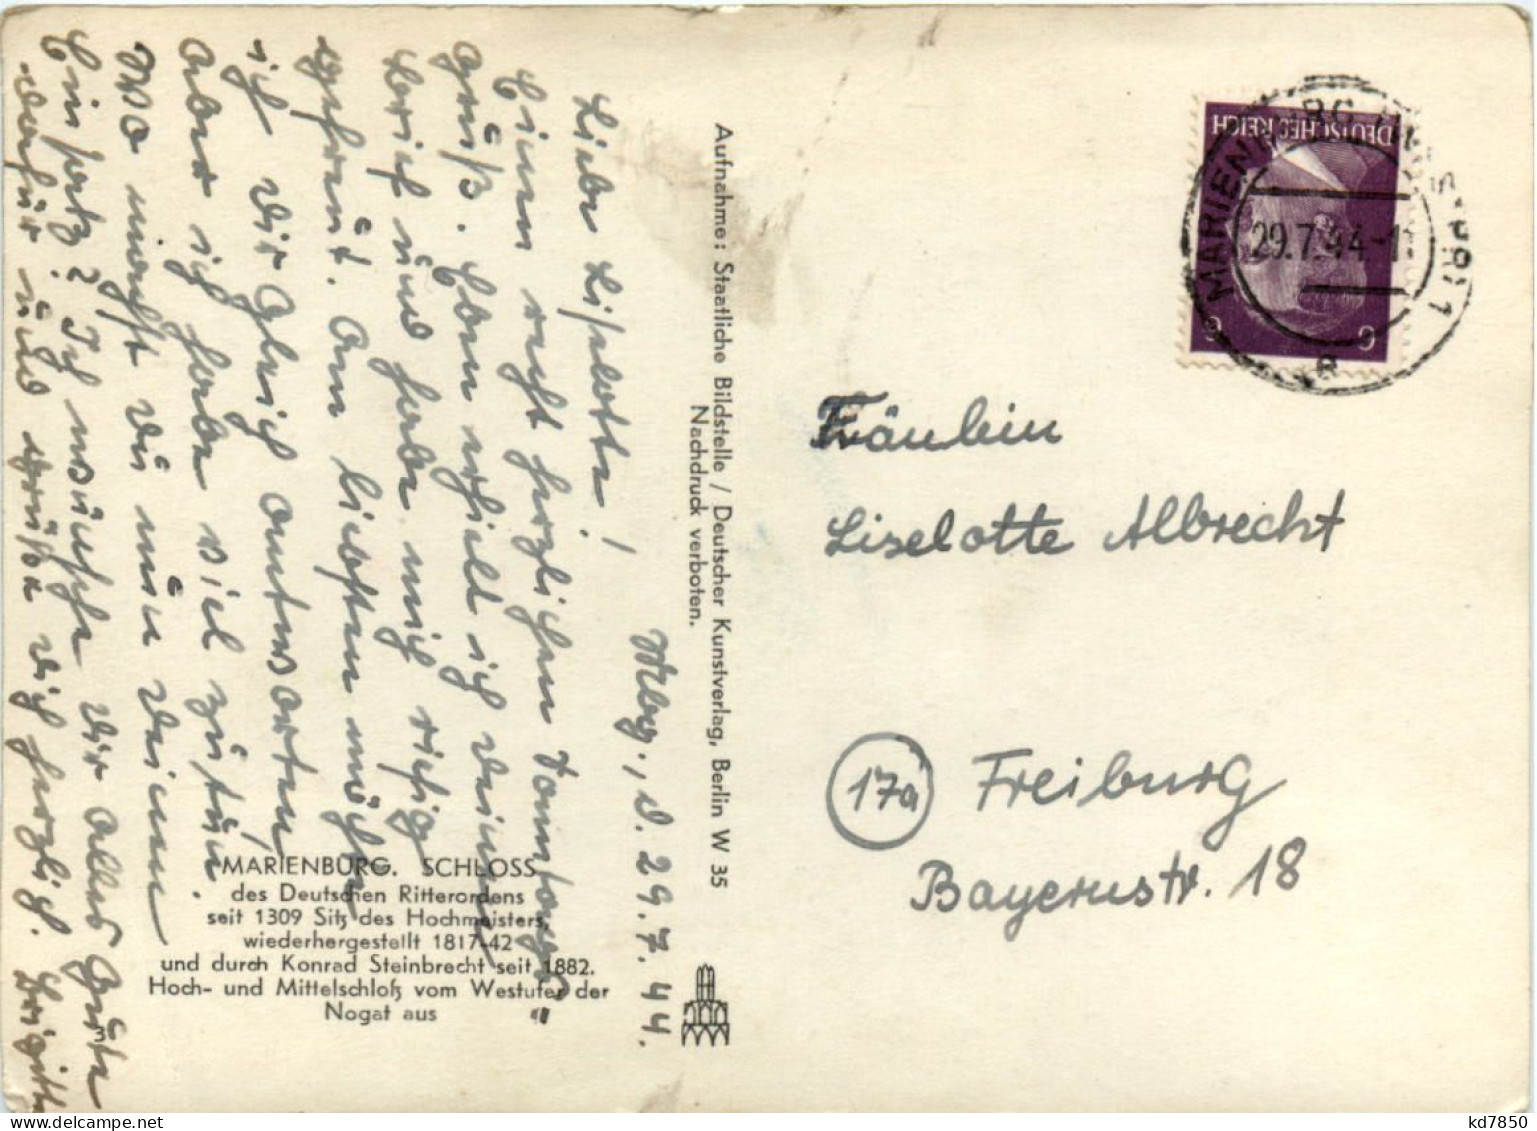 Mbg., d. 29.7.44.
Liebe Liselotte!
Einen recht herzlichen Sonntags-
gruß. Eben erhielt ich deinen
Brief und habe mich richtig
gefreut. Am liebsten möchte
ich dir gleich antworten,
aber ich habe viel zu tun.
Wo machst du nun deinen
Einsatz? Ich wünsche dir alles Gute
dafür und grüße dich herzlich. Brigitte
MARIENBURG. SCHLOSS
des Deutschen Ritterordens
seit 1309 Sitz des Hochmeisters,
wiederhergestellt 1817-42
und durch Konrad Steinbrecht seit 1882.
Hoch- und Mittelschloß vom Westufer der
Nogat aus
Aufnahme: Staatliche Bildstelle / Deutscher Kunstverlag, Berlin W 35
Nachdruck verboten.
DEUTSCHES REICH
6 6
MARIENBURG 1
29.7.44-11
a
Fräulein
Liselotte Albrecht
17a Freiburg
Bayernstr. 18
kd7850